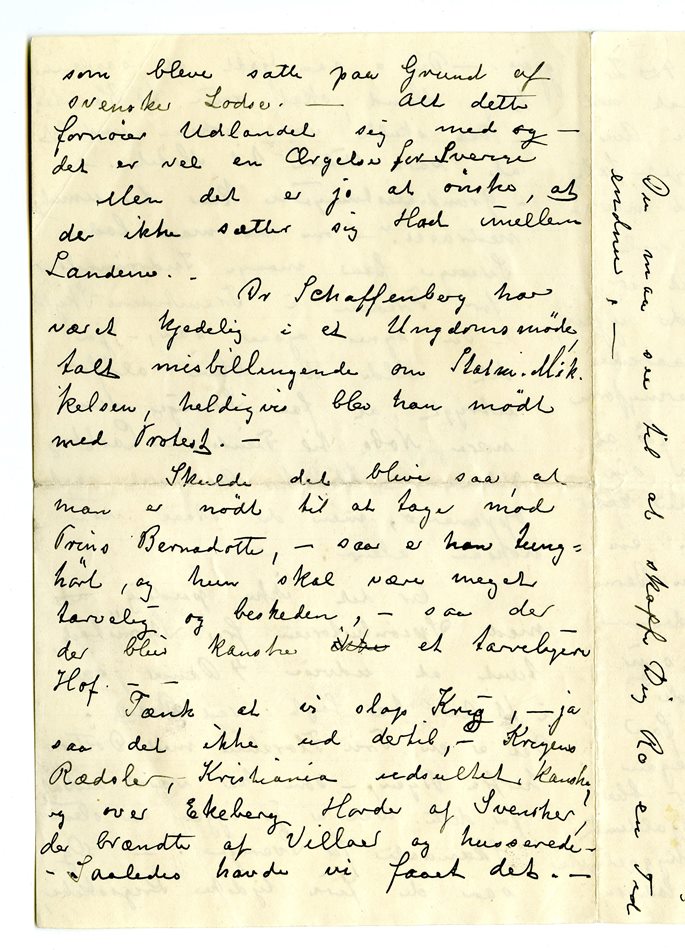 som bleve satte paa Grund af
svenske Lodse. — Alt dette
fornøier Udlandet sig med og —
det er vel en Ærgelse for Sverige
Men det er jo at ønske, at
der ikke sætter sig Had imellem
Landene. -
Dr Schaffenberg har
været kjedelig i et Ungdomsmøde,
talt misbilligende om Statsm. Mik-
kelsen, heldigvis blev han mødt
med Protest. —
Skulde det blive saa, at
man er nødt til at tage mod
Prins Bernadotte, — saa er han tung=
hört, og hun skal være meget
tarvelig og beskeden, — saa der
der blev kanske ikke et tarveligere
Hof. —
Tænk at vi slap Krig, — ja
saa det ikke ud dertil, — Krigens
Rædsler, — Kristiania udsultet kanske,
og over Ekeberg Horde af Svensker,
der brændte af Villaer og husserede —
- Saaledes havde vi faaet det. —
Du maa see til at skaffe Dig Ro en Tid
endnu, —